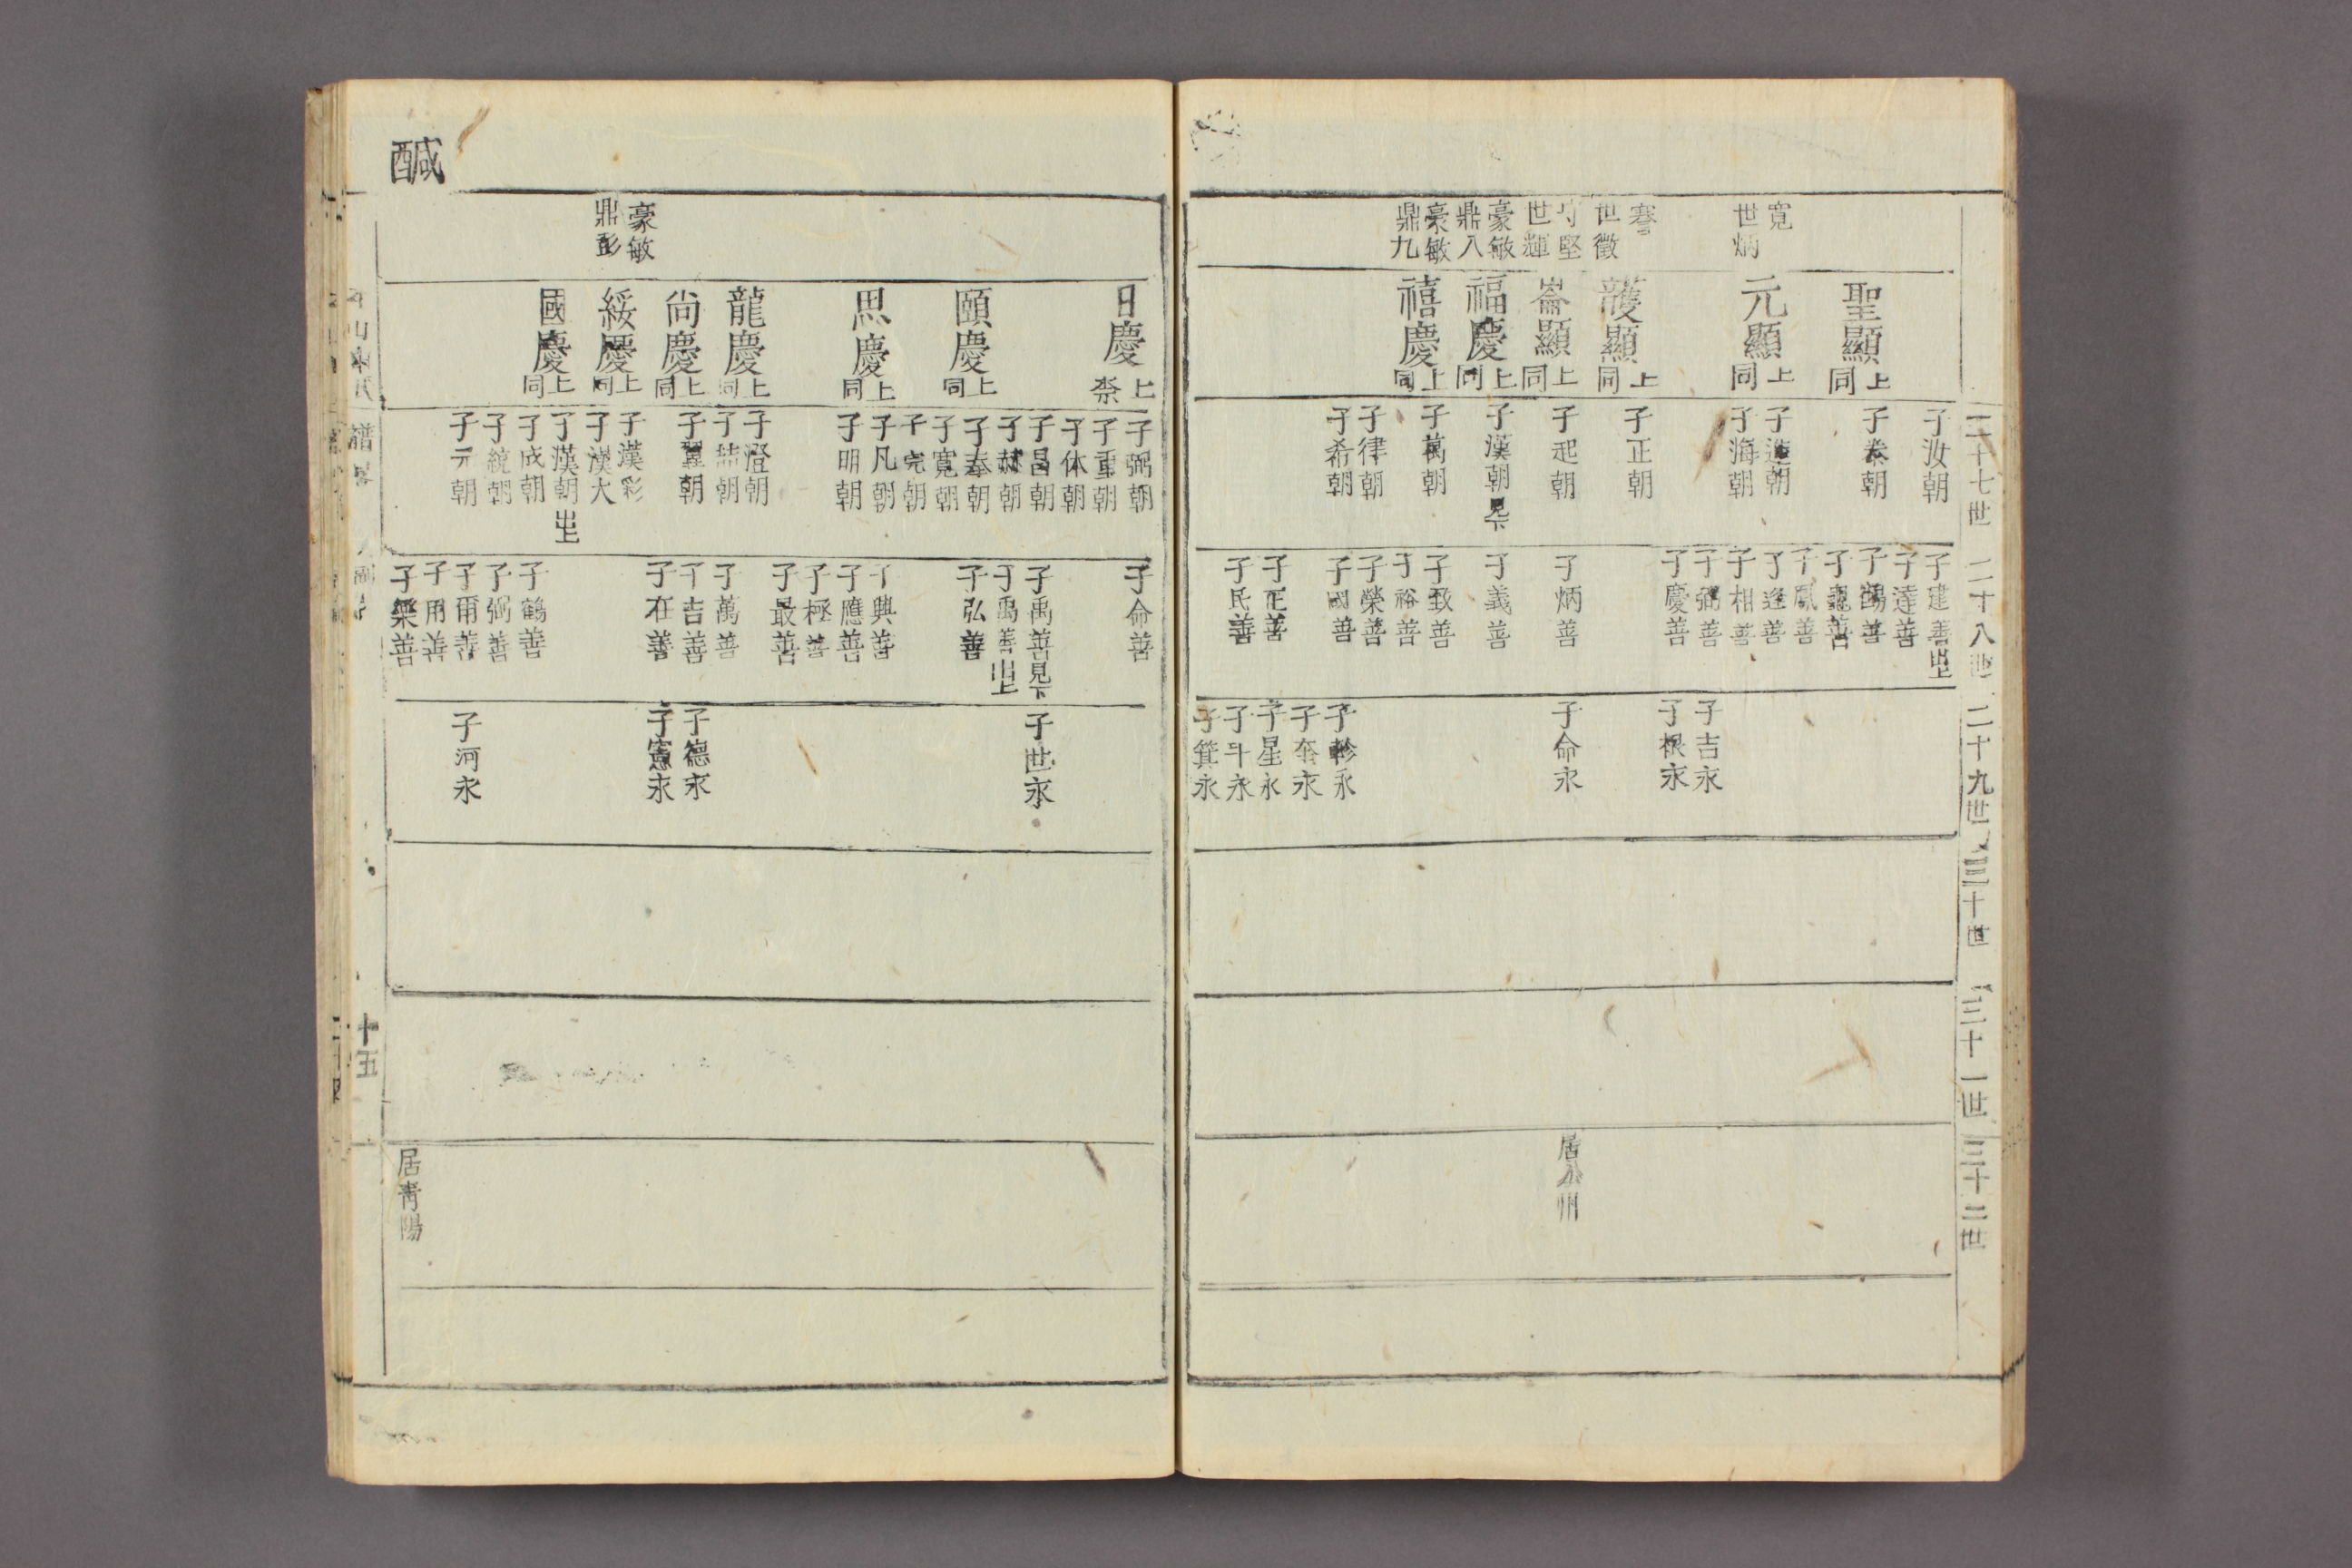 二十七世
二十八世
二十九世
三十世
三十一世
三十二世
寬
世炳
謇
世徵
守堅
世輝
豪敏
鼎八
豪敏
鼎九
聖顯上同
元顯上同
頀顯上同
崙顯上同
福慶上同
禧慶上同
子汝朝
子泰朝
子蓮朝
子海朝
子正朝
子起朝
子漢朝見下
子萬朝
子律朝
子希朝
子建善出上
子達善
子鶴善
子龜善
子鳳善
子逢善
子相善
子弼善
子慶善
子炳善
子義善
子致善
子裕善
子榮善
子國善
子正善
子民善
子吉永
子根永
子命永
子軫永
子奎永
子星永
子斗永
子箕永
居 州
豪敏
鼎彭
日慶上柰
頤慶上同
思慶上同
龍慶上同
尙慶上同
綏慶上同
國慶上同
子弼朝
子重朝
子休朝
子昌朝
子赫朝
子奉朝
子寬朝
子完朝
子凡朝
子明朝
子澄朝
子喆朝
子翼朝
子漢彩
子漢大
子漢朝出上
子成朝
子統朝
子元朝
子命善
子禹善見下
子禹善出上
子弘善
子興善
子應善
子極善
子最善
子萬善
子吉善
子在善
子鶴善
子弼善
子爾善
子用善
子樂善
子世永
子德永
子憲永
子河永
居靑陽
醎
譜畧
十五